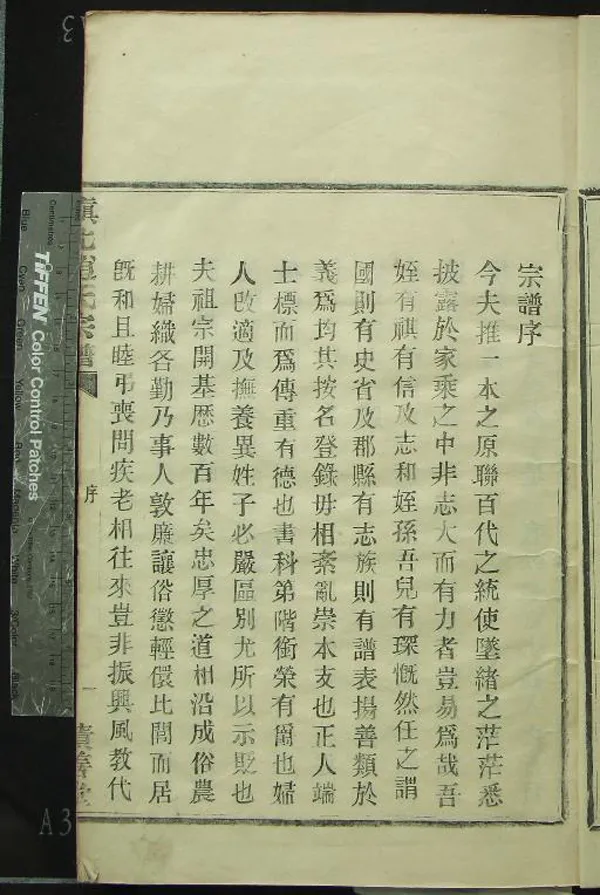 宗譜序
今夫推一本之原聯百代之統使墜緒之茫茫悉
披露於家乘之中非志大而有力者豈易爲哉吾
姪有祺有信及志和姪孫吾兒有琛慨然任之謂
國則有史省及郡縣有志族則有譜表揚善類於
義爲均其按名登錄毋相紊亂崇本支也正人端
士標而爲傳重有德也書科第階銜榮有爵也婦
人改適及撫養異姓子必嚴區別尤所以示貶也
夫祖宗開基歴數百年矣忠厚之道相沿成俗農
耕婦織各勤乃事人敦廉讓俗懲輕儇比閭而居
旣和且睦弔喪問疾老相往來豈非振興風教代
宗譜
序
一
TIFFEN Color Control Patches
Centimetres
Blue
Cyan
Green
Yellow
Red
Magenta
White
Black
A3